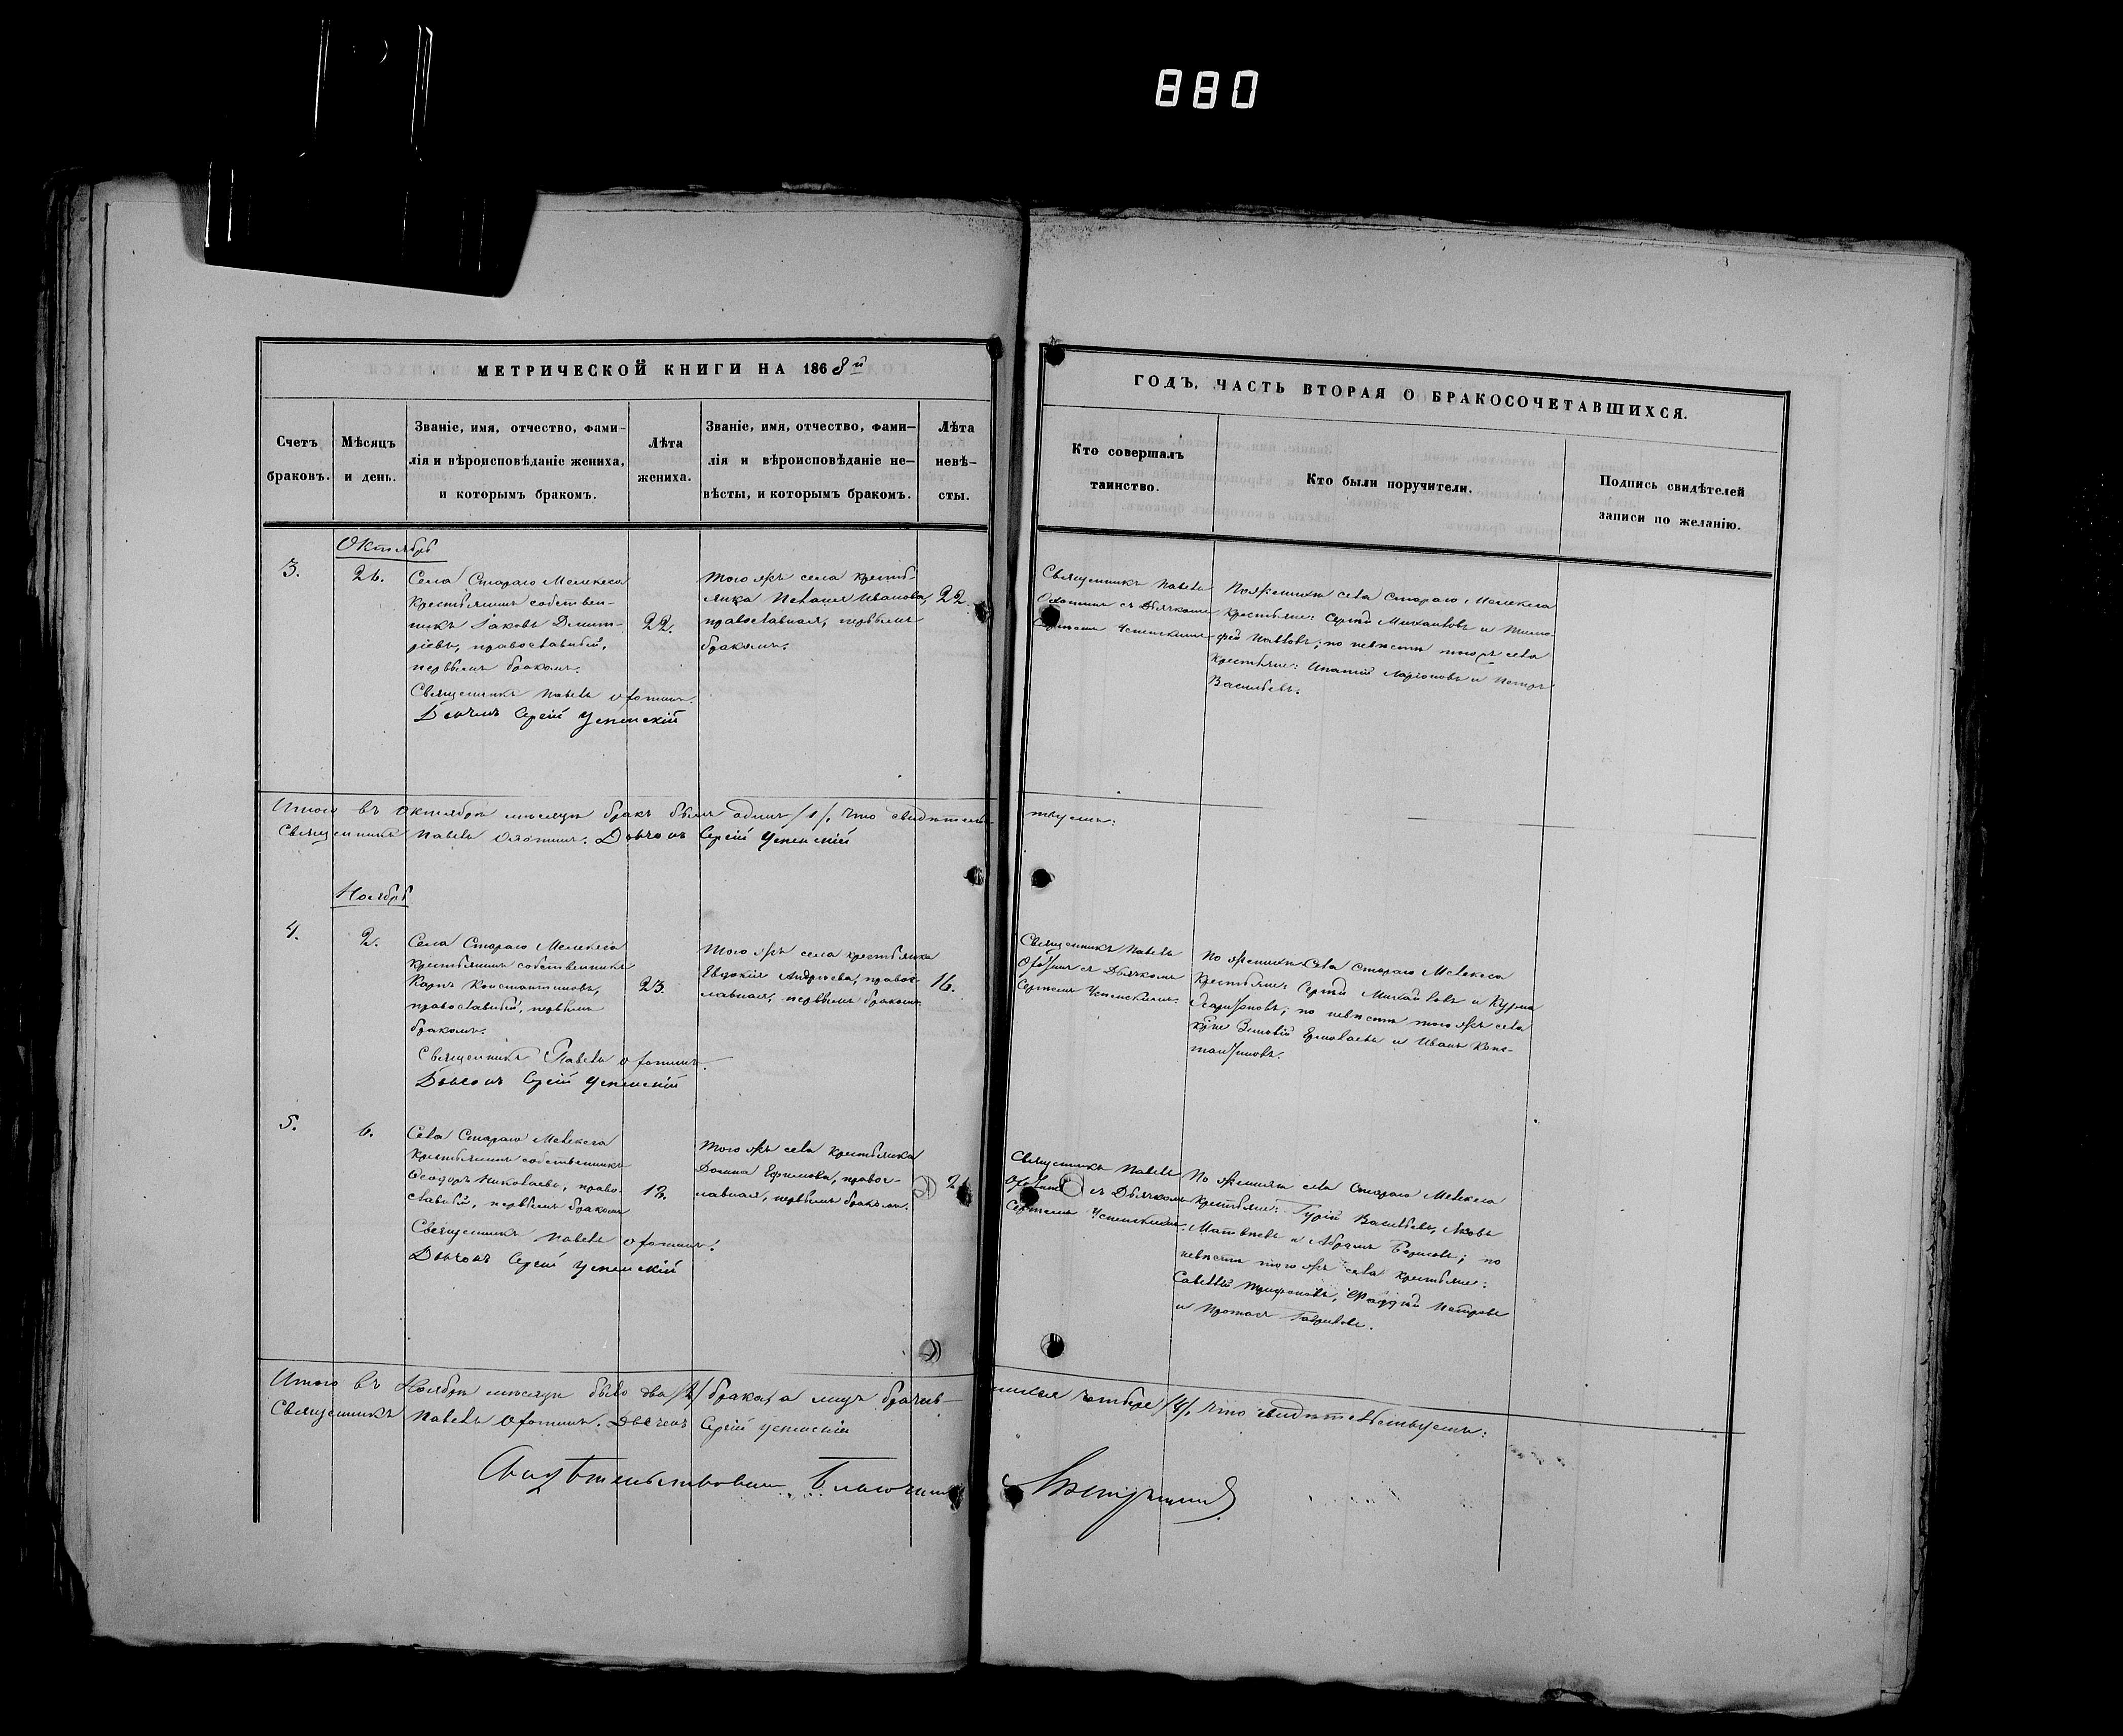 880
МЕТРИЧЕСКОЙ КНИГИ НА 1868й
Счетъ
браковъ.
Мѣсяцъ
и день.
Званіе, имя, отчество, фами-
лія и вѣроисповѣданіе жениха,
и которымъ бракомъ.
Лѣта
жениха.
Званіе, имя, отчество, фами-
лія и вѣроисповѣданіе не-
вѣсты, и которымъ бракомъ.
Лѣта
невѣ-
сты.
Октябрь
3.
26.
Села Стараго Мелекеса
крестьянинъ собствен-
никъ Іаковъ Димит-
ріевъ, православный,
первымъ бракомъ.
Священникъ Павелъ
Дьячокъ Сергій Успенскій
22.
Того жъ села кресть-
янка Иванова,
православная, первымъ
бракомъ.
22.
Итого въ Октябрѣ мѣсяцѣ бракъ былъ одинъ /1/, что свидѣтель-
Священникъ Павелъ Дьячокъ Сергій Успенскій
Ноябрь
4.
2.
Села Стараго Мелекеса
крестьянинъ собственникъ
Карпъ Константиновъ,
православный, первымъ
бракомъ.
Священникъ Павелъ
Дьячокъ Сергій Успенскій
23.
Того жъ села крестьянка
Евдокія Андреева, правос-
лавная, первымъ бракомъ.
16.
5.
6.
Села Стараго Мелекеса
крестьянинъ собственникъ
Ѳеодоръ Николаевъ, право-
славный, первымъ бракомъ
Священникъ Павелъ
Дьячокъ Сергій Успенскій
Того жъ села крестьянка
Домна Ефимова, правос-
лавная, первымъ бракомъ.
Итого въ Ноябрѣ мѣсяцѣ было два /2/ брака, а лицъ брачив-
Священникъ Павелъ Дьячокъ Сергій Успенскій
Свидѣтельствовалъ Благочин
ГОДЪ, ЧАСТЬ ВТОРАЯ О БРАКОСОЧЕТАВШИХСЯ.
Кто совершалъ
таинство.
Кто были поручители.
Подпись свидѣтелей
записи по желанію.
Священникъ Павелъ
съ Дьячкомъ
Сергіемъ Успенскимъ
По женихѣ села Стараго Мелекеса
крестьяне: Сергій Михайловъ и Тимо-
фей Павловъ; по невѣстѣ тогожъ села
крестьяне: Ипатій Ларіоновъ и Петръ
Васильевъ.
ствуемъ:
Священникъ Павелъ
съ Дьячкомъ
Сергіемъ Успенскимъ.
По женихѣ села Стараго Мелекеса
крестьяне: Сергій Михайловъ и Кузма
по невѣстѣ того жъ села
Зиновій Ермолаевъ и Иванъ Конс-
тантиновъ.
Священникъ Павелъ
съ Дьячкомъ
Сергіемъ Успенскимъ.
По женихѣ села Стараго Мелекеса
крестьяне: Гурій Васильевъ, Яковъ
Матвѣевъ и Абрамъ Борисовъ; по
невѣстѣ того жъ села крестьяне:
Савелій Трифоновъ, Фаддей Петровъ
и Гавриловъ.
шихся четыре /4/, что свидѣтельствуемъ: